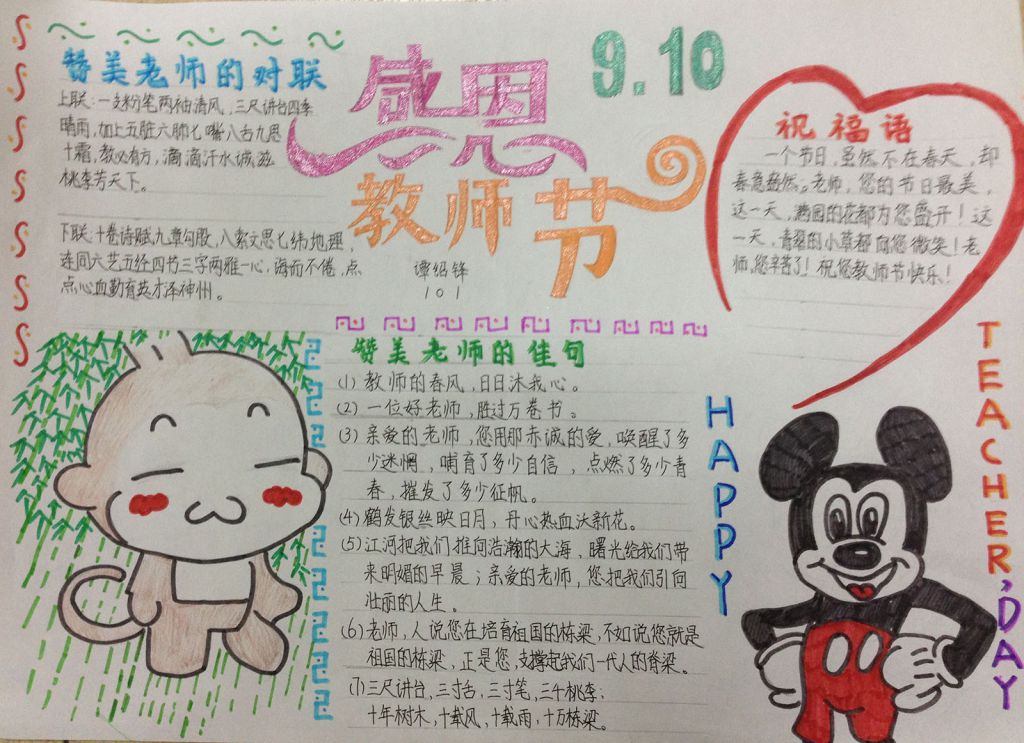 赞美老师的对联
上联:一支粉笔两袖清风,三尺讲台四季
晴雨,加上五脏六腑七嘴八舌九思
十霜,教必有方,滴滴汗水诚滋
桃李芳天下。
下联:十卷诗赋九章勾股,八索文思七纬地理,
连同六艺五经四书三字两雅一心,诲而不倦,点
点心血勤育英才泽神州。
感恩
教师节
谭绍锋
101
9.10
祝福语
一个节日,虽然不在春天,却
春意盎然。老师,您的节日最美,
这一天,满园的花都为您盛开!这
一天,青翠的小草都向您微笑!老
师,您辛苦了!祝您教师节快乐!
赞美老师的佳句
(1)教师的春风,日日沐我心。
(2)一位好老师,胜过万卷书。
(3)亲爱的老师,您用那赤诚的爱,唤醒了多
少迷惘,哺育了多少自信,点燃了多少青
春,摧发了多少征帆。
(4)鹤发银丝映日月,丹心热血沃新花。
(5)江河把我们推向浩瀚的大海,曙光给我们带
来明媚的早晨;亲爱的老师,您把我们引向
壮丽的人生。
(6)老师,人说您在培育祖国的栋梁,不如说您就是
祖国的栋梁,正是您,支撑起我们一代人的脊梁。
(7)三尺讲台,三寸舌,三寸笔,三千桃李;
十年树木,十载风,十载雨,十万栋梁。
HAPPY
TEACHER'DAY